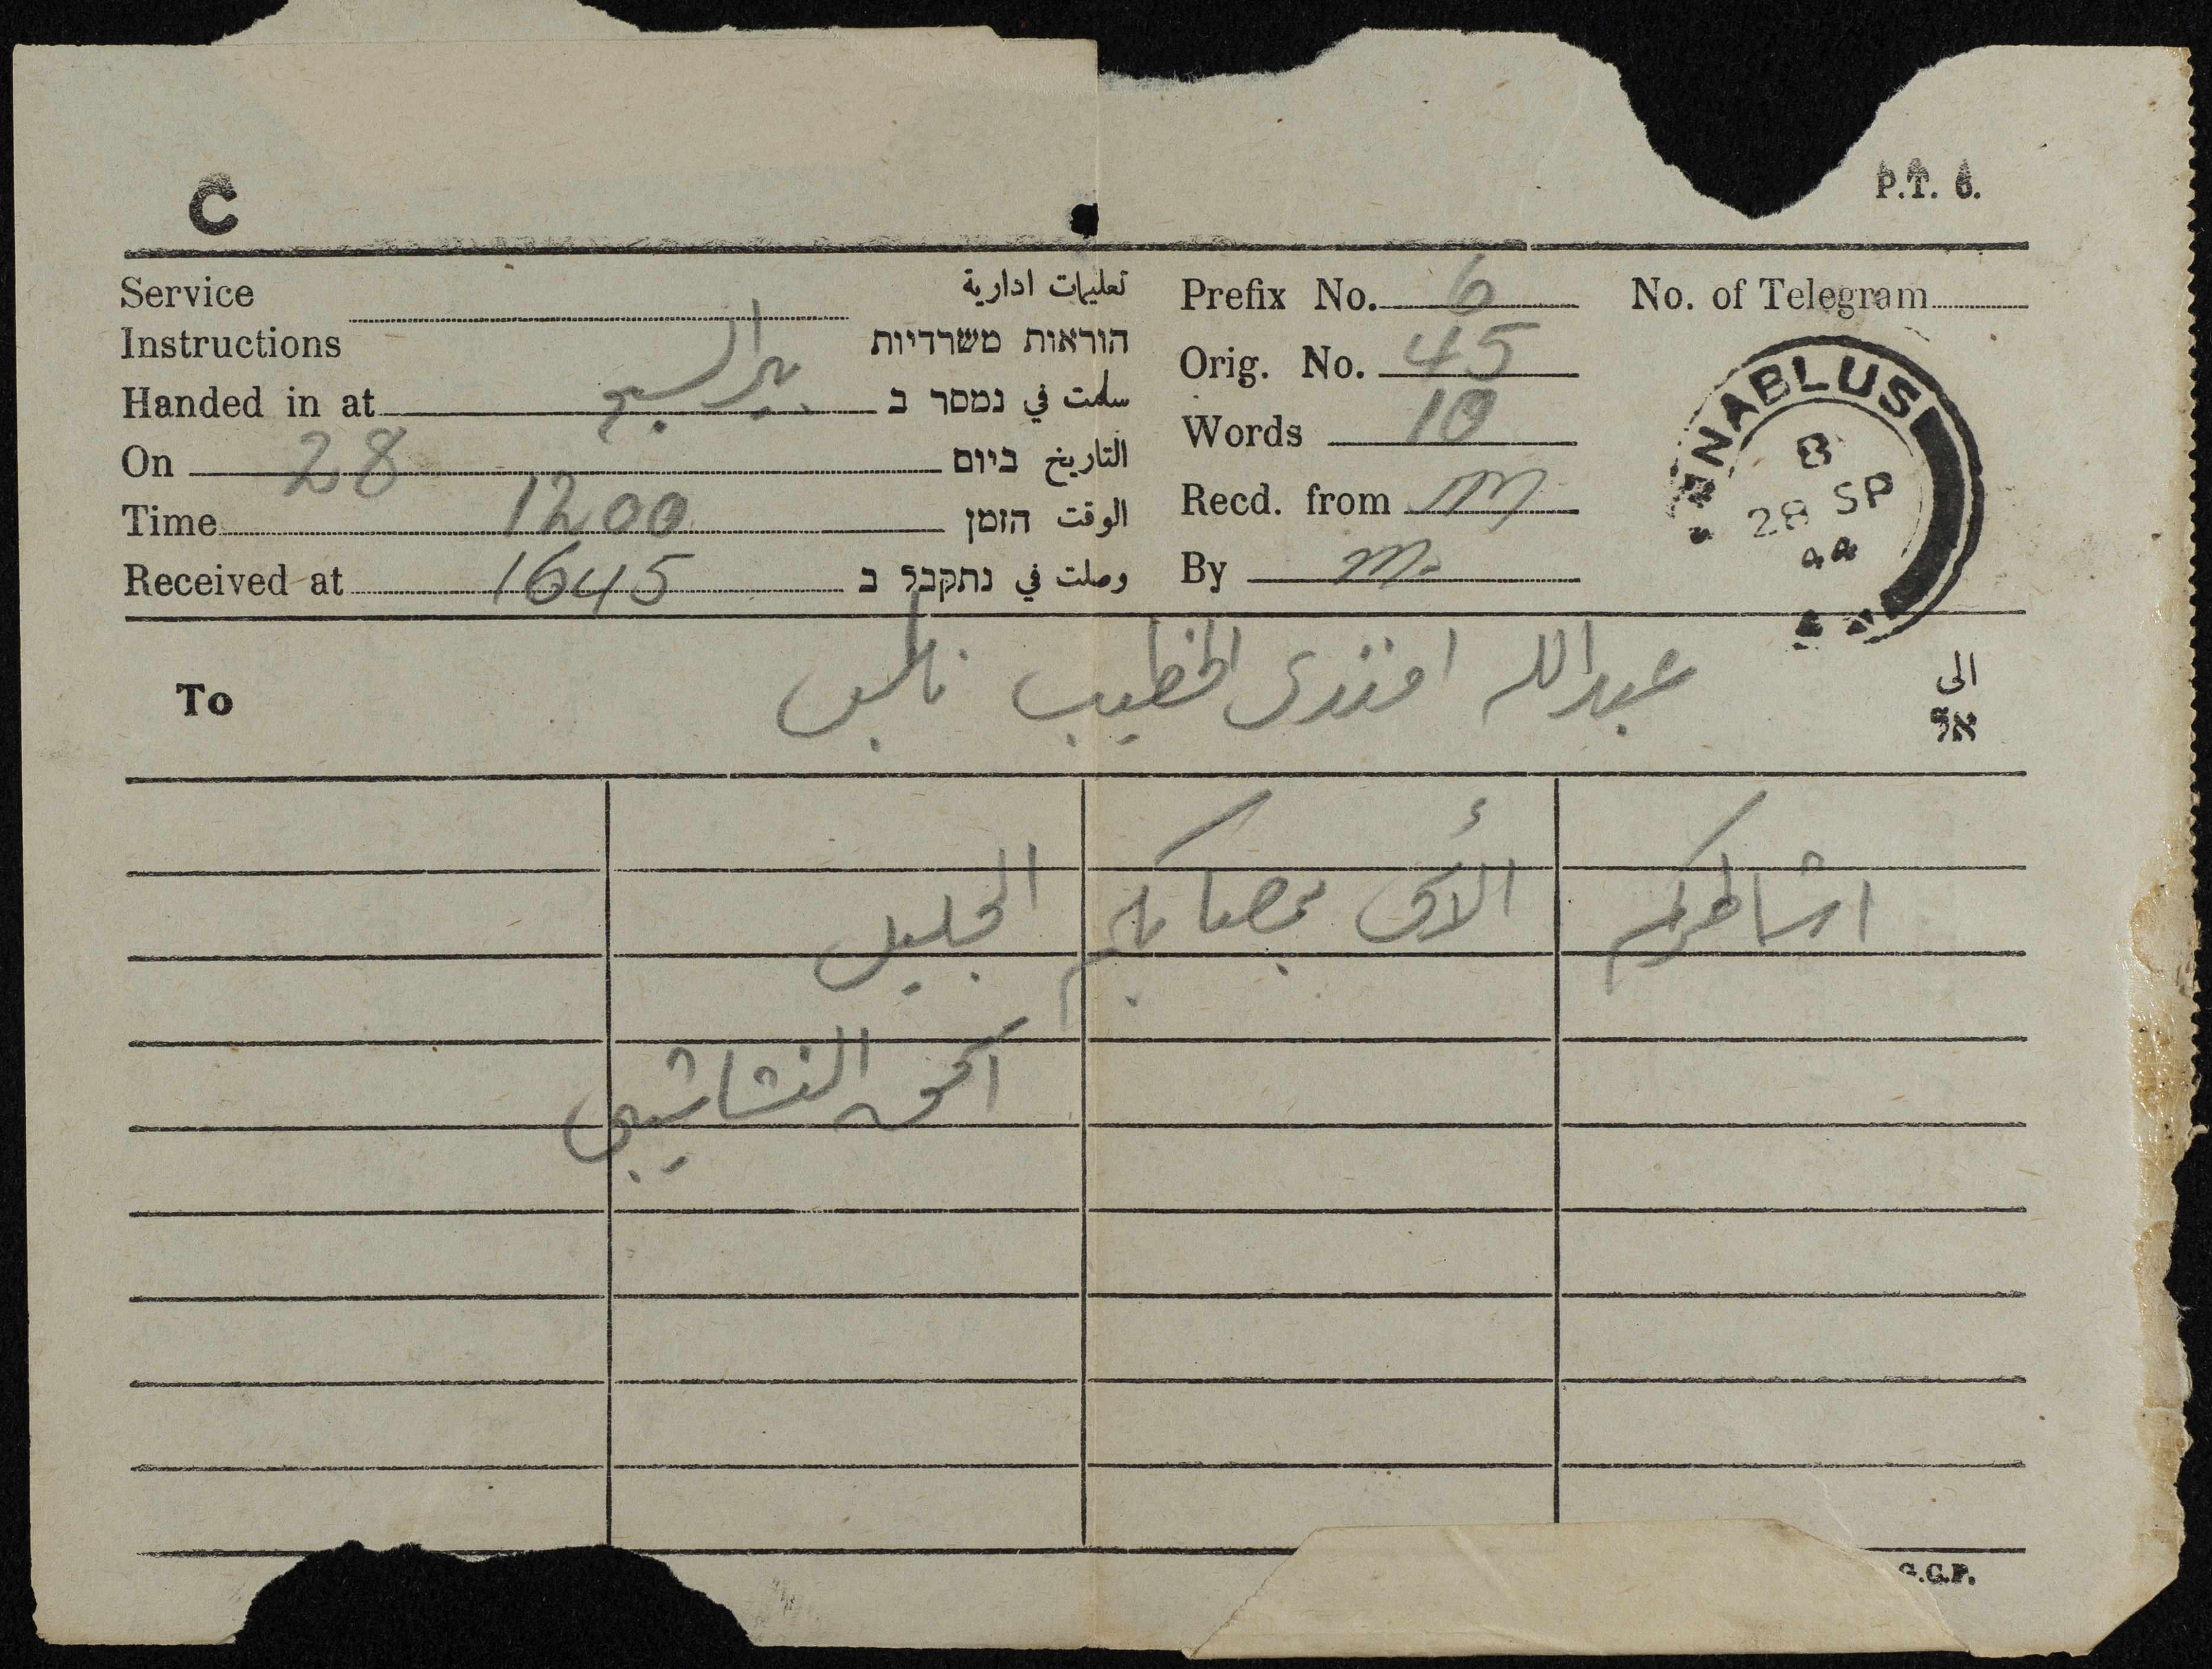 C
P.T. 6.
Service
Instructions
تعليمات ادارية
הוראות משרדיות
Handed in at بير السبع سلمت في נמסר ב
On 28 التاريخ ביום
Time 1200 الوقت הזמן
Received at 1645 وصلت في נתקבל ב
Prefix No. 6
Orig. No. 45
Words 10
Recd. from m
By m.
No. of Telegram
NABLUS
B
28 SP
44
To عبدالله افندى الخطيب نابلس الى
אל
اشاطركم الأسى بمصابكم الجليل
النشاشيبي
G.G.P.